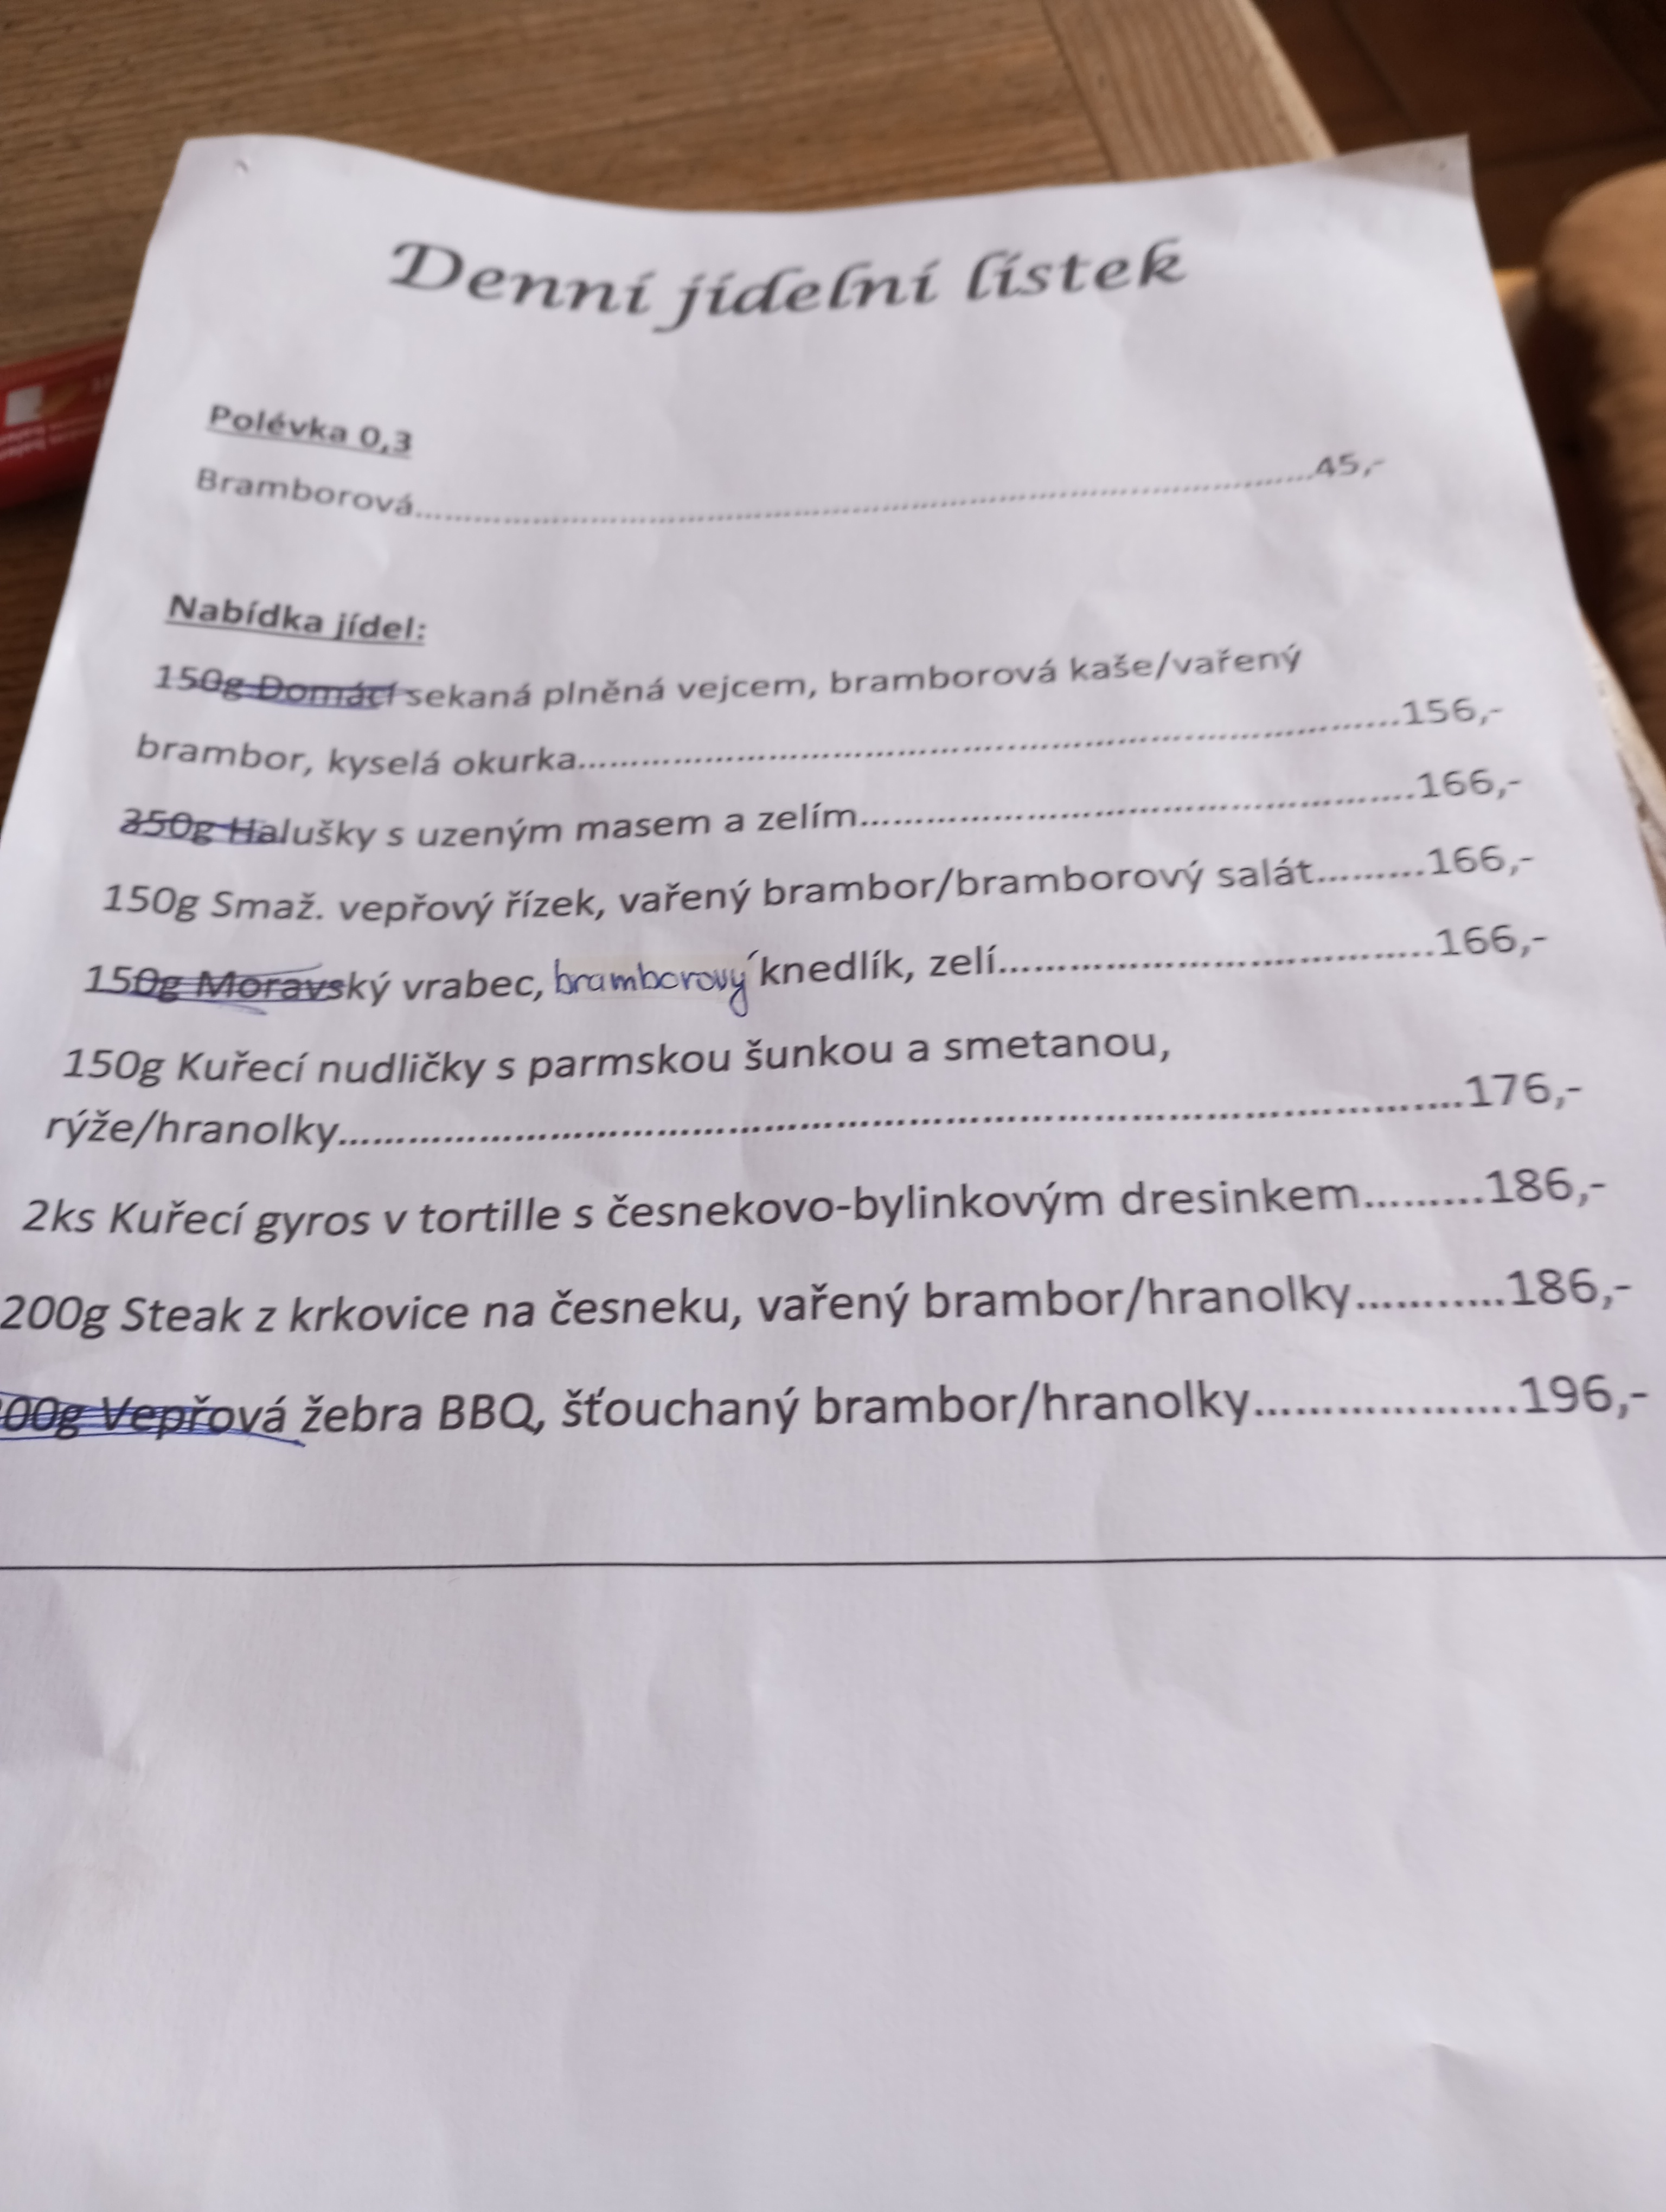 Denní jídelní lístek
Polévka 0,3
Bramborová......................................................................................45,-
Nabídka jídel:
150g Domácí sekaná plněná vejcem, bramborová kaše/vařený
brambor, kyselá okurka..............................................................................156,-
350g Halušky s uzeným masem a zelím....................................................166,-
150g Smaž. vepřový řízek, vařený brambor/bramborový salát.........166,-
150g Moravský vrabec, bramborový knedlík, zelí.......................................166,-
150g Kuřecí nudličky s parmskou šunkou a smetanou,
rýže/hranolky................................................................................176,-
2ks Kuřecí gyros v tortille s česnekovo-bylinkovým dresinkem.........186,-
200g Steak z krkovice na česneku, vařený brambor/hranolky...........186,-
00g Vepřová žebra BBQ, šťouchaný brambor/hranolky...................196,-